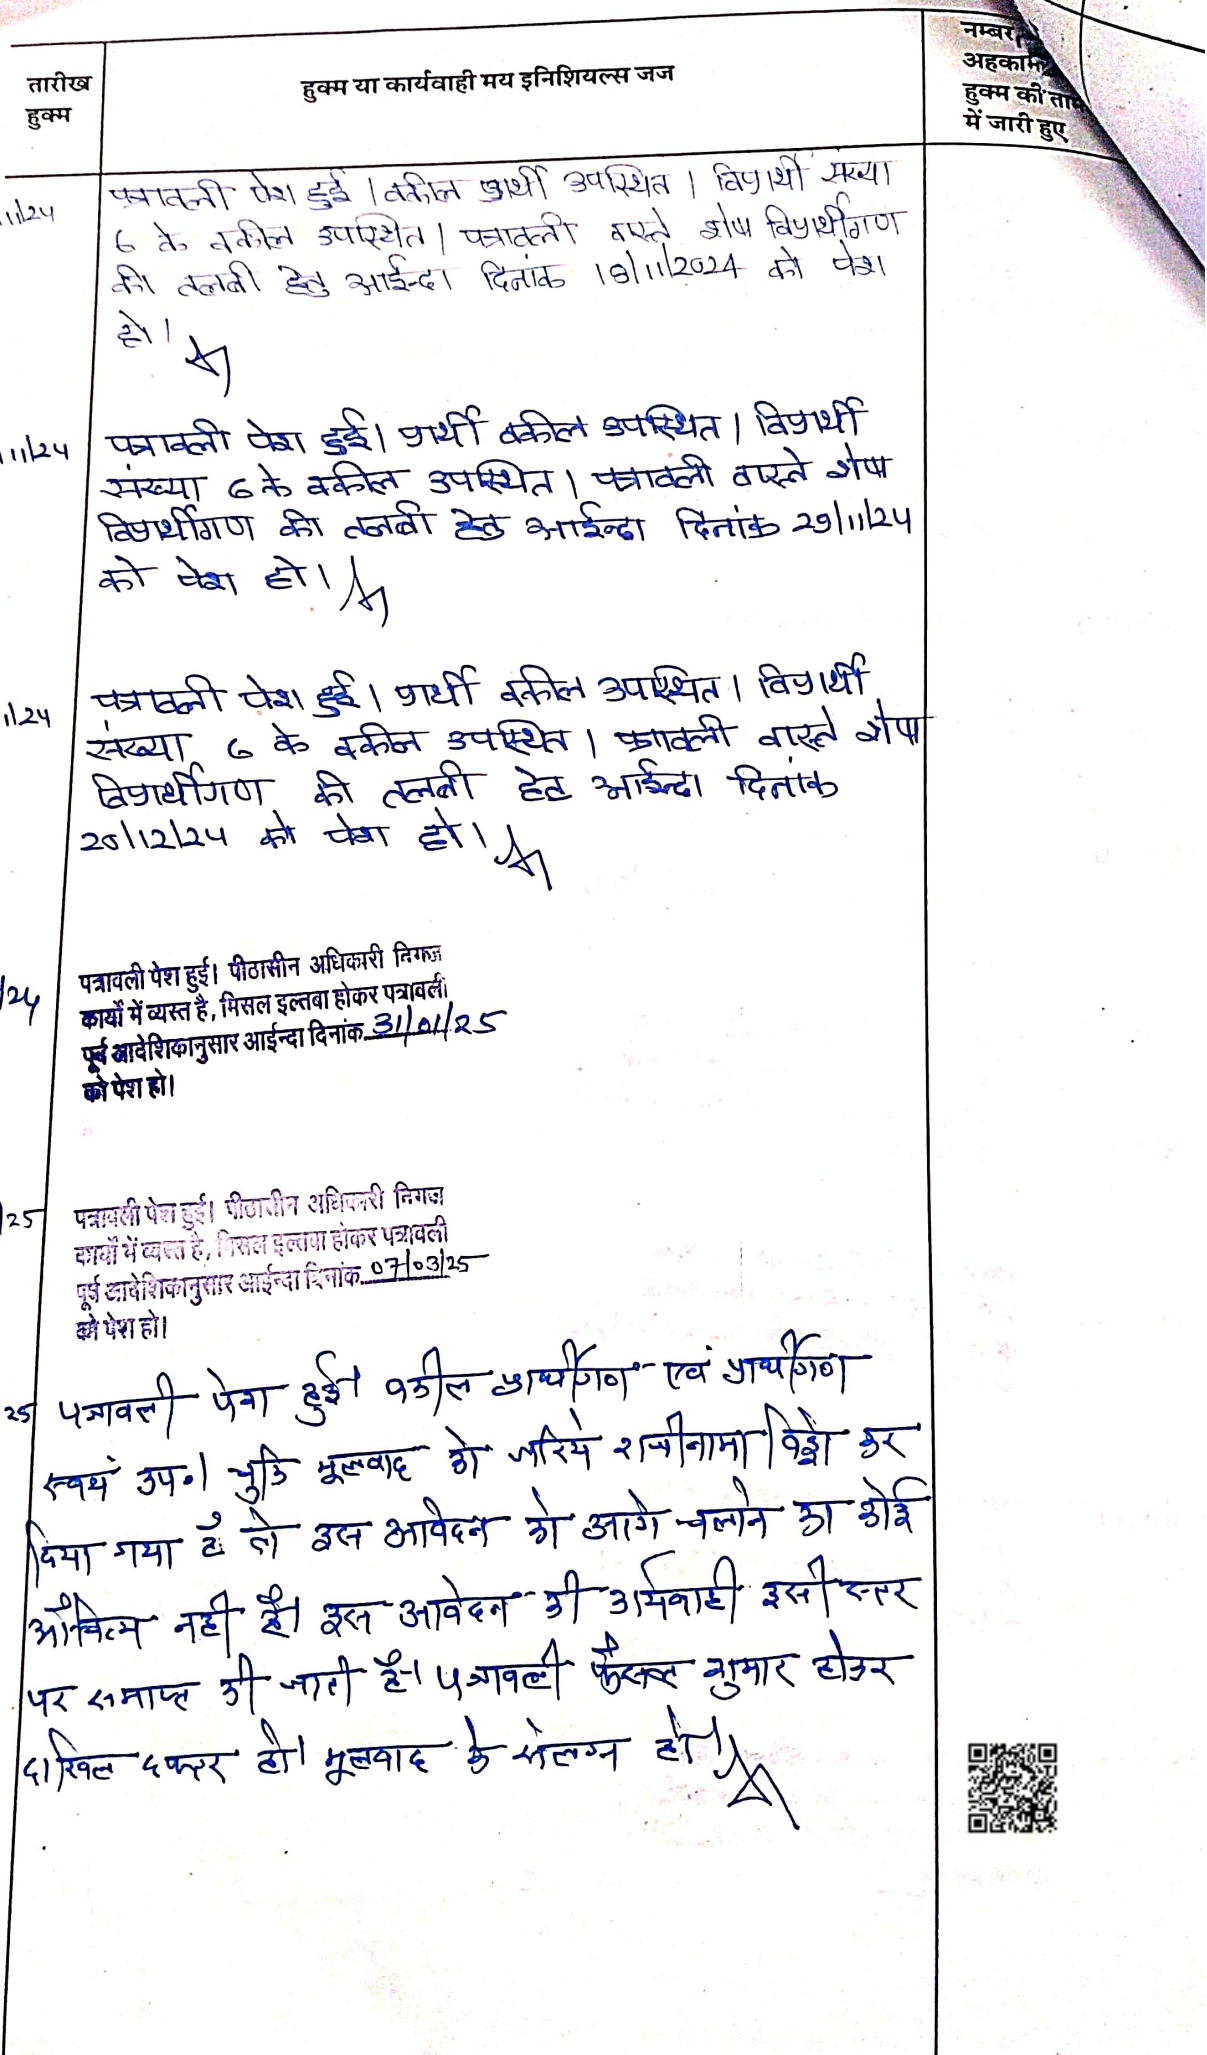 तारीख
हुक्म
हुक्म या कार्यवाही मय इनिशियल्स जज
नम्बर
अहकाम
हुक्म की ताम
में जारी हुए
11/24
पत्रावली पेश हुई । वकील प्रार्थी उपस्थित । विप्रार्थी संख्या
6 के वकील उपस्थित । पत्रावली वास्ते शेष विप्रार्थीगण
की तलबी हेतु आईन्दा दिनांक 18/11/2024 को पेश
हो ।
11/24
पत्रावली पेश हुई । प्रार्थी वकील उपस्थित । विप्रार्थी
संख्या 6 के वकील उपस्थित । पत्रावली वास्ते शेष
विप्रार्थीगण की तलबी हेतु आईन्दा दिनांक 29/11/24
को पेश हो ।
1/24
पत्रावली पेश हुई । प्रार्थी वकील उपस्थित । विप्रार्थी
संख्या 6 के वकील उपस्थित । पत्रावली वास्ते शेष
विप्रार्थीगण की तलबी हेतु आईन्दा दिनांक
20/12/24 को पेश हो ।
/24
पत्रावली पेश हुई। पीठासीन अधिकारी
कार्यो में व्यस्त है, मिसल इल्तबा होकर पत्रावली
पूर्व आदेशिकानुसार आईन्दा दिनांक 31/01/25
को पेश हो।
/25
पत्रावली पेश हुई। पीठासीन अधिकारी
कार्यो में व्यस्त है, मिसल इल्तबा होकर पत्रावली
पूर्व आदेशिकानुसार आईन्दा दिनांक 07/03/25
को पेश हो।
25
पत्रावली पेश हुई। वकील प्रार्थीगण एवं प्रार्थीगण
स्वयं उप०। चुकि मूलवाद को जरिये राजीनामा विड्रो कर
दिया गया है तो इस आवेदन को आगे चलाने का कोई
औचित्य नहीं है। इस आवेदन की कार्यवाही इसी स्तर
पर समाप्त की जाती है। पत्रावली फैसल शुमार होकर
दाखिल दफ्तर हो। मूलवाद के संलग्न हो।